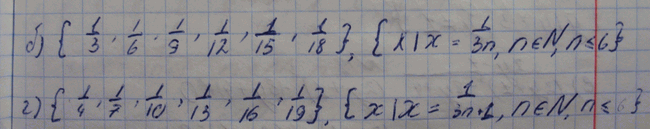 б) { 1/3, 1/6, 1/9, 1/12, 1/15, 1/18 }, { x | x = 1/3n, n ∈ N, n ≤ 6 }
г) { 1/4, 1/7, 1/10, 1/13, 1/16, 1/19 }, { x | x = 1/3n+1, n ∈ N, n ≤ 6 }